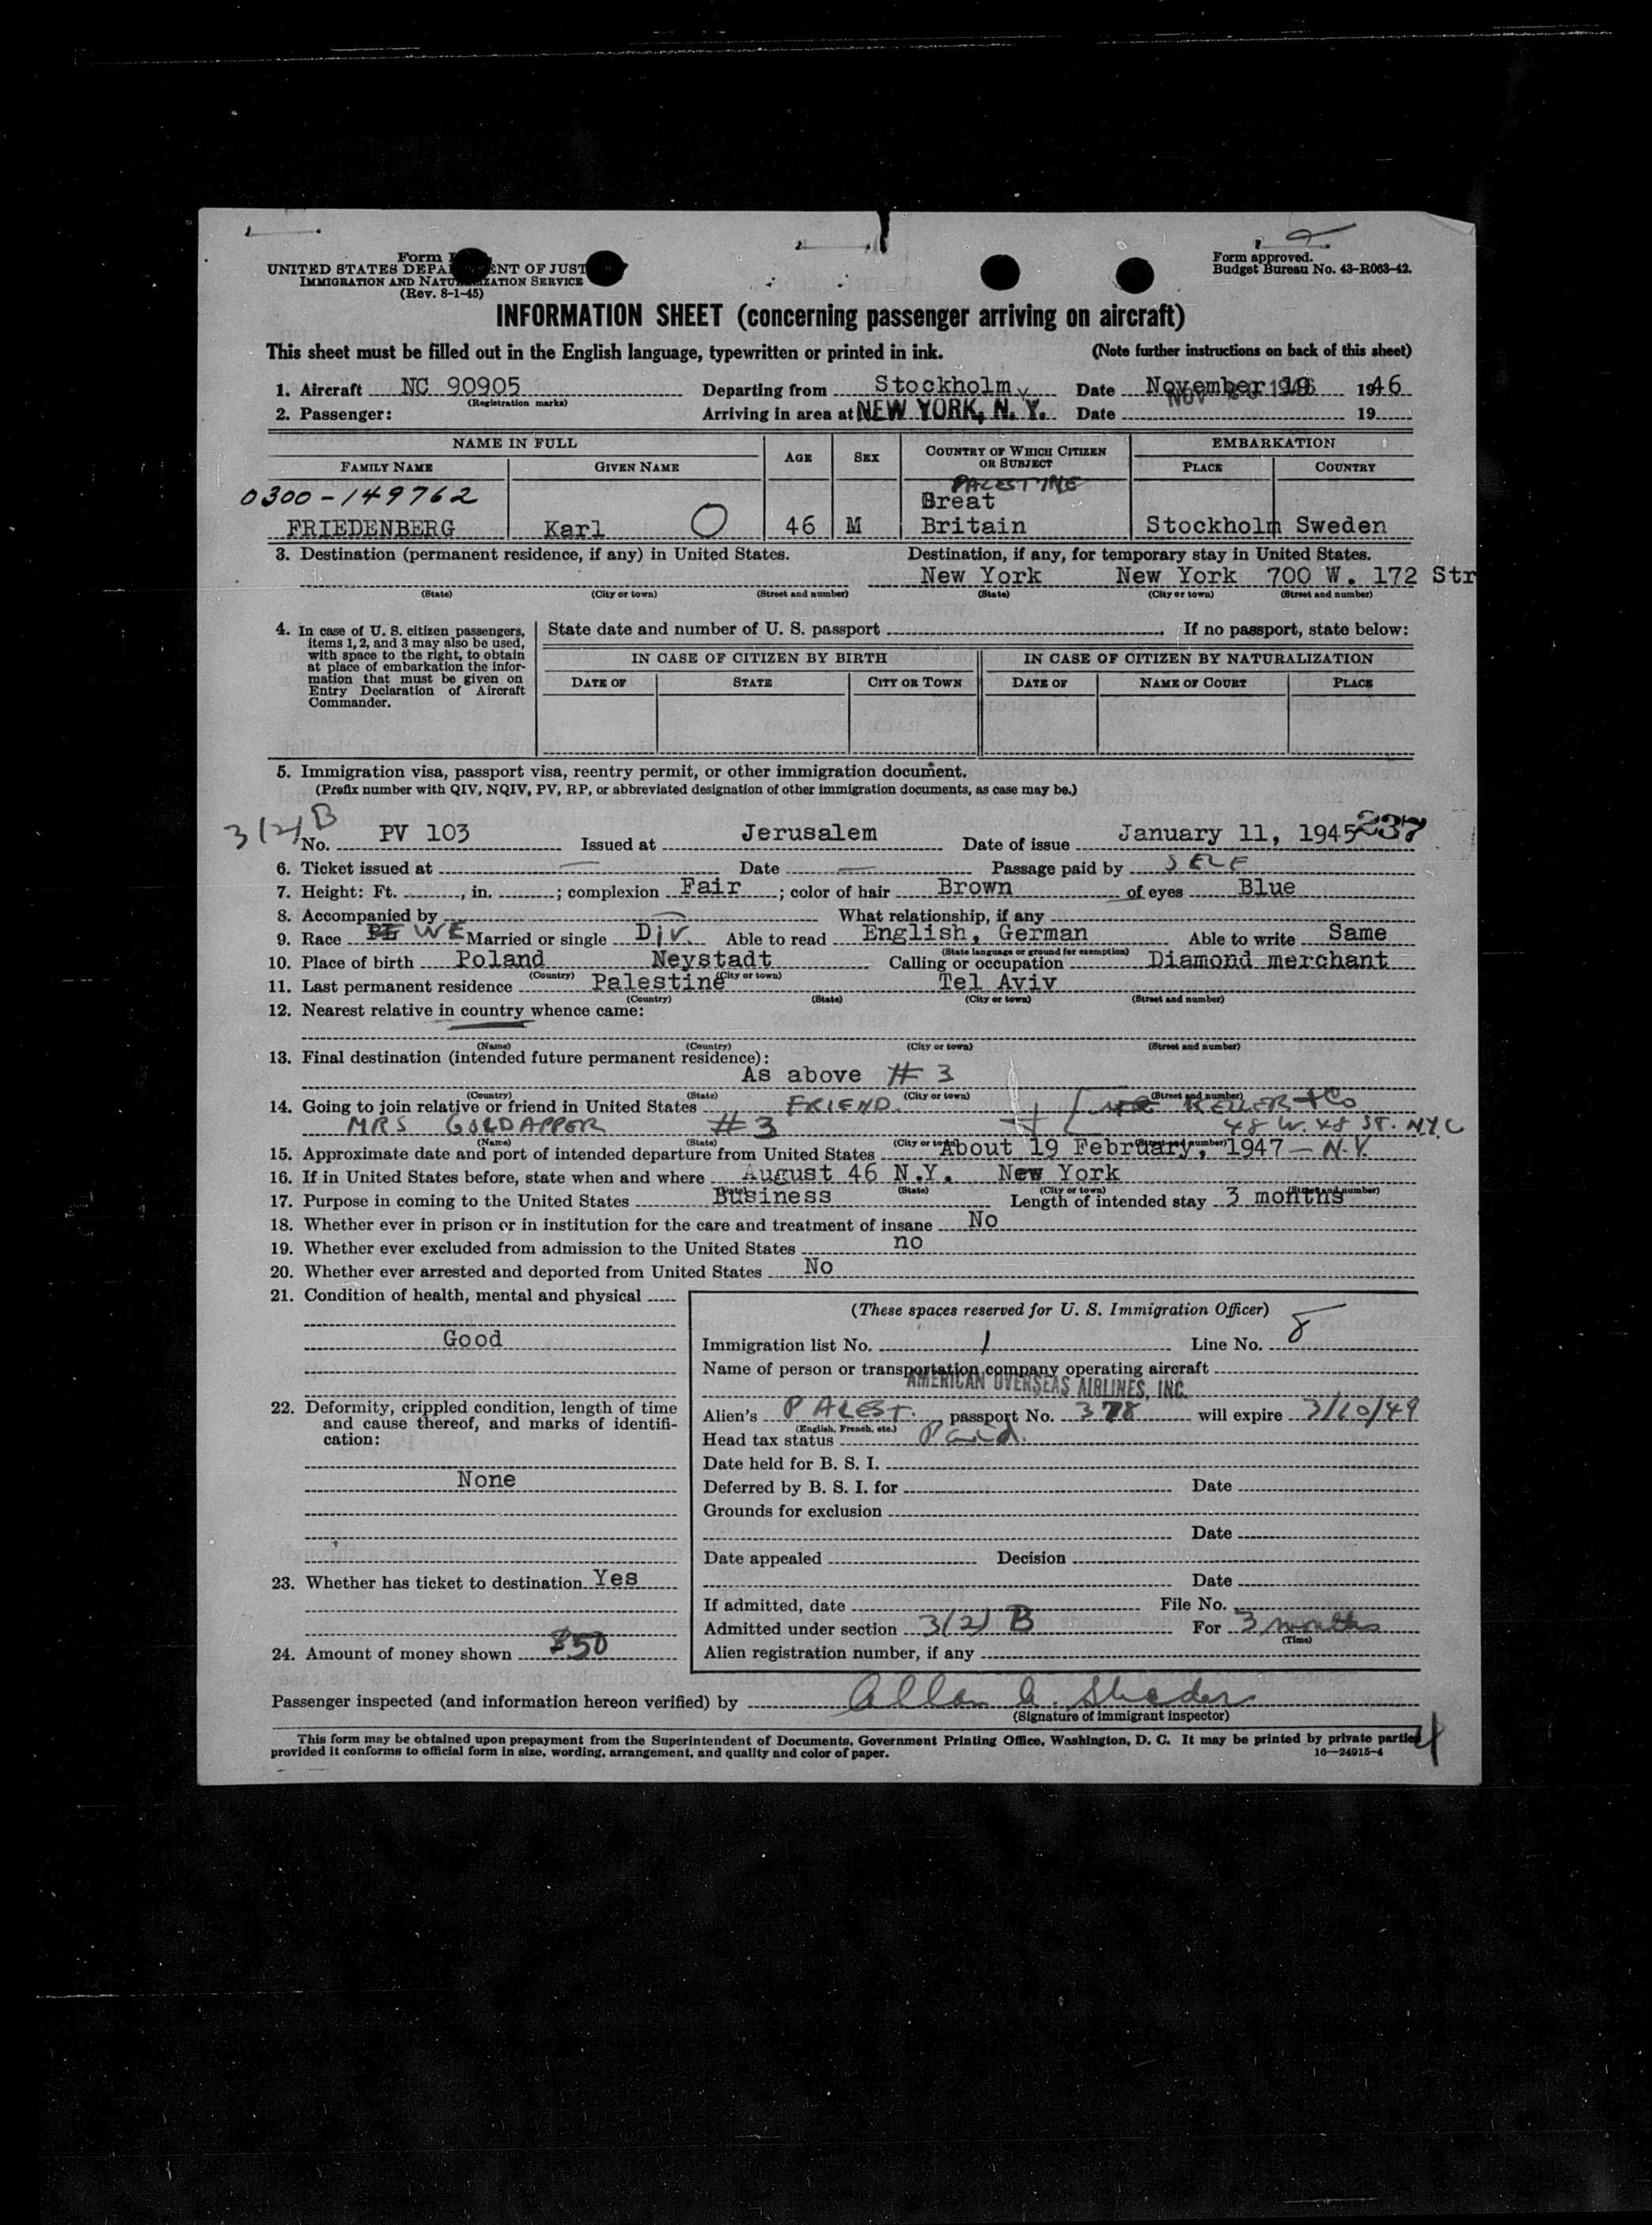 Form approved.
UNITED STATES DEPARTMENT OF JUSTICE Budget Bureau No. 43-R063-42.
IMMIGRATION AND NATURALIZATION SERVICE
(Rev. 8-1-45)
INFORMATION SHEET (concerning passenger arriving on aircraft)
This sheet must be filled out in the English language, typewritten or printed in ink. (Note further instructions on back of this sheet)
1. Aircraft NC 90905 Departing from Stockholm Date November 19 1946
(Registration marks)
2. Passenger: Arriving in area at NEW YORK, N. Y. Date NOV 1946 19
NAME IN FULL AGE SEX COUNTRY OF WHICH CITIZEN OR SUBJECT EMBARKATION
FAMILY NAME GIVEN NAME PLACE COUNTRY
PALESTINE
0300-149762 Breat
FRIEDENBERG Karl O 46 M Britain Stockholm Sweden
3. Destination (permanent residence, if any) in United States. Destination, if any, for temporary stay in United States.
New York New York 700 W. 172 Str
(State) (City or town) (Street and number) (State) (City or town) (Street and number)
4. In case of U. S. citizen passengers, items 1, 2, and 3 may also be used, with space to the right, to obtain at place of embarkation the information that must be given on Entry Declaration of Aircraft Commander.
State date and number of U. S. passport . If no passport, state below:
IN CASE OF CITIZEN BY BIRTH IN CASE OF CITIZEN BY NATURALIZATION
DATE OF STATE CITY OR TOWN DATE OF NAME OF COURT PLACE
5. Immigration visa, passport visa, reentry permit, or other immigration document.
(Prefix number with QIV, NQIV, PV, RP, or abbreviated designation of other immigration documents, as case may be.)
3(2)B
No. PV 103 Issued at Jerusalem Date of issue January 11, 1945 237
6. Ticket issued at — Date — Passage paid by SELF
7. Height: Ft. , in. ; complexion Fair ; color of hair Brown of eyes Blue
8. Accompanied by — What relationship, if any
9. Race WE Married or single Div. Able to read English, German Able to write Same
(State language or ground for exemption)
10. Place of birth Poland Neystadt Calling or occupation Diamond merchant
(Country) (City or town)
11. Last permanent residence Palestine Tel Aviv
(Country) (State) (City or town) (Street and number)
12. Nearest relative in country whence came:
(Name) (Country) (City or town) (Street and number)
13. Final destination (intended future permanent residence):
As above # 3
(Country) (State) (City or town) (Street and number)
14. Going to join relative or friend in United States FRIEND. KELLER + Co
MRS GOLDAPPER #3 48 W. 48 ST. NYC
(Name) (State) (City or town) (Street and number)
15. Approximate date and port of intended departure from United States About 19 February, 1947 — N.Y.
16. If in United States before, state when and where August 46 N.Y. New York
(State) (City or town) (Street and number)
17. Purpose in coming to the United States Business Length of intended stay 3 months
18. Whether ever in prison or in institution for the care and treatment of insane No
19. Whether ever excluded from admission to the United States no
20. Whether ever arrested and deported from United States No
21. Condition of health, mental and physical
Good
22. Deformity, crippled condition, length of time
and cause thereof, and marks of identifi-
cation:
None
23. Whether has ticket to destination Yes
24. Amount of money shown $50
(These spaces reserved for U. S. Immigration Officer)
Immigration list No. 1 Line No. 8
Name of person or transportation company operating aircraft
AMERICAN OVERSEAS AIRLINES, INC.
Alien's PALEST. passport No. 378 will expire 3/10/49
(English, French, etc.)
Head tax status Paid.
Date held for B. S. I.
Deferred by B. S. I. for Date
Grounds for exclusion
Date
Date appealed Decision
Date
If admitted, date File No.
Admitted under section 3(2) B For 3 months
(Time)
Alien registration number, if any
Passenger inspected (and information hereon verified) by
(Signature of immigrant inspector)
This form may be obtained upon prepayment from the Superintendent of Documents, Government Printing Office, Washington, D. C. It may be printed by private parties
provided it conforms to official form in size, wording, arrangement, and quality and color of paper. 16—24915-4
4